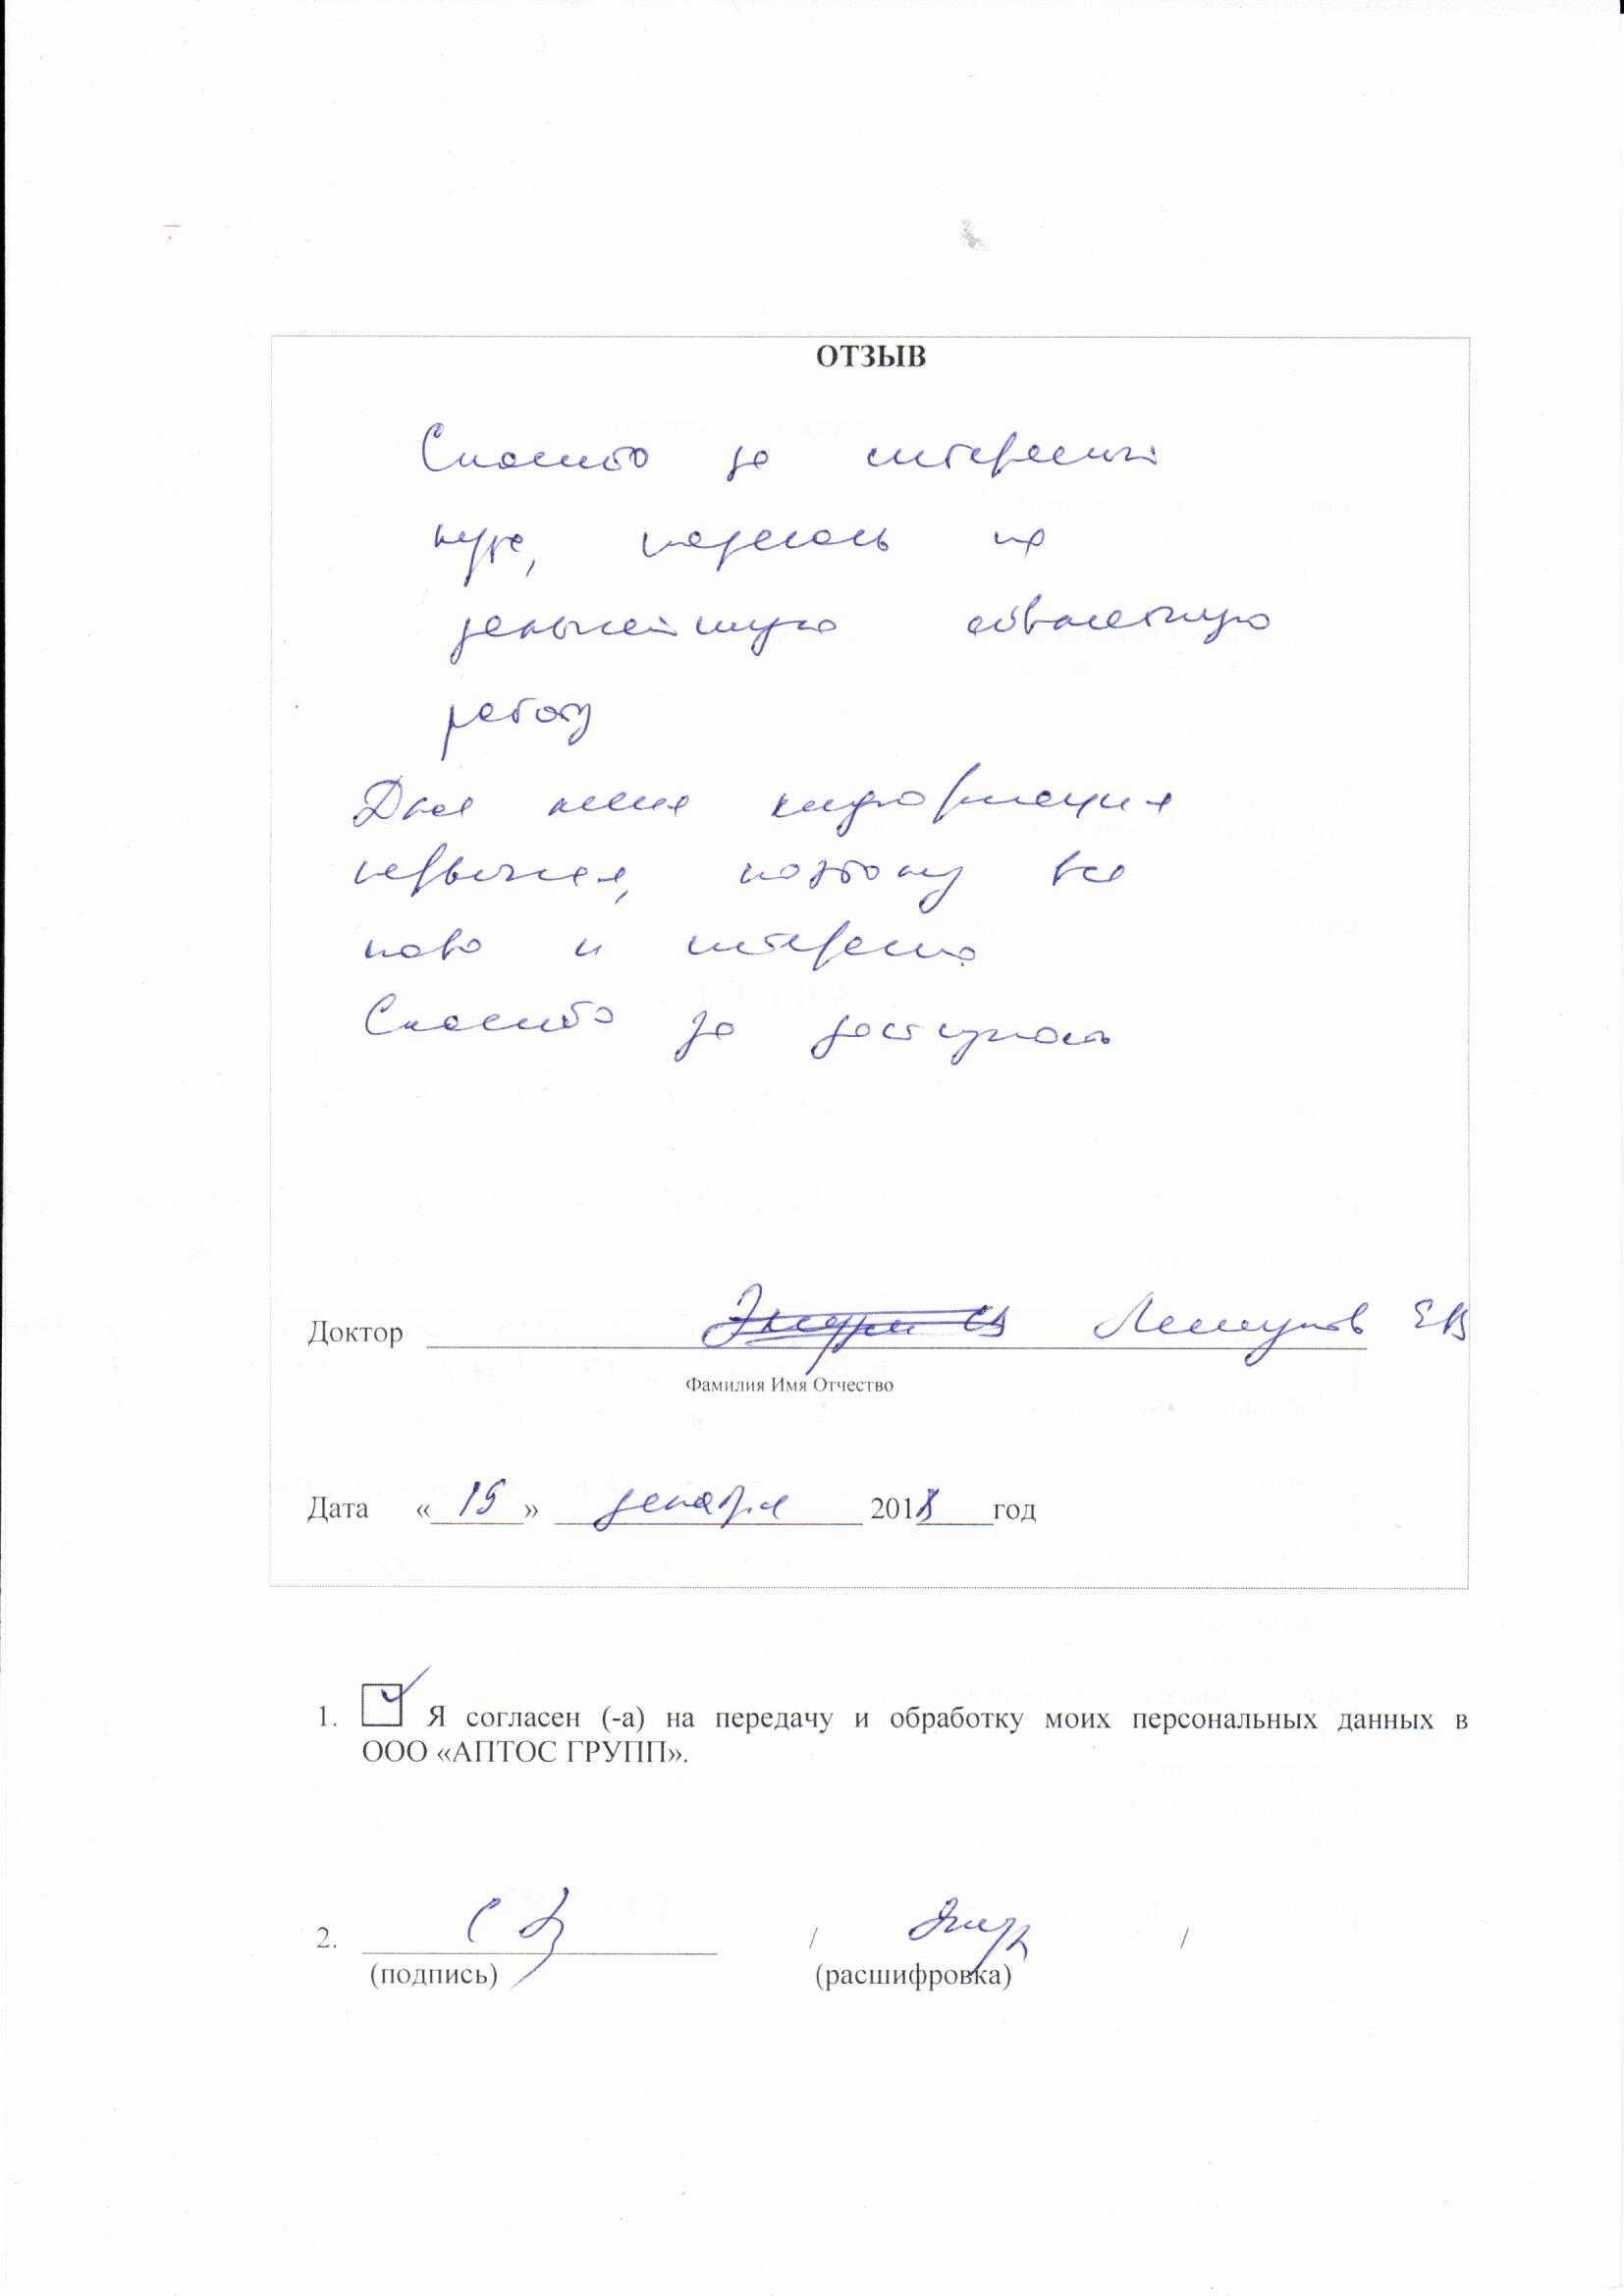 ОТЗЫВ
Спасибо за интересный
курс, надеюсь на
дальнейшую совместную
работу
Для меня информация
первичная, поэтому все
ново и интересно
Спасибо за доступность
Доктор
Фамилия Имя Отчество
Дата «19» декабря 2018 год
1. Я согласен (-а) на передачу и обработку моих персональных данных в
ООО «АПТОС ГРУПП».
2. / /
(подпись) (расшифровка)